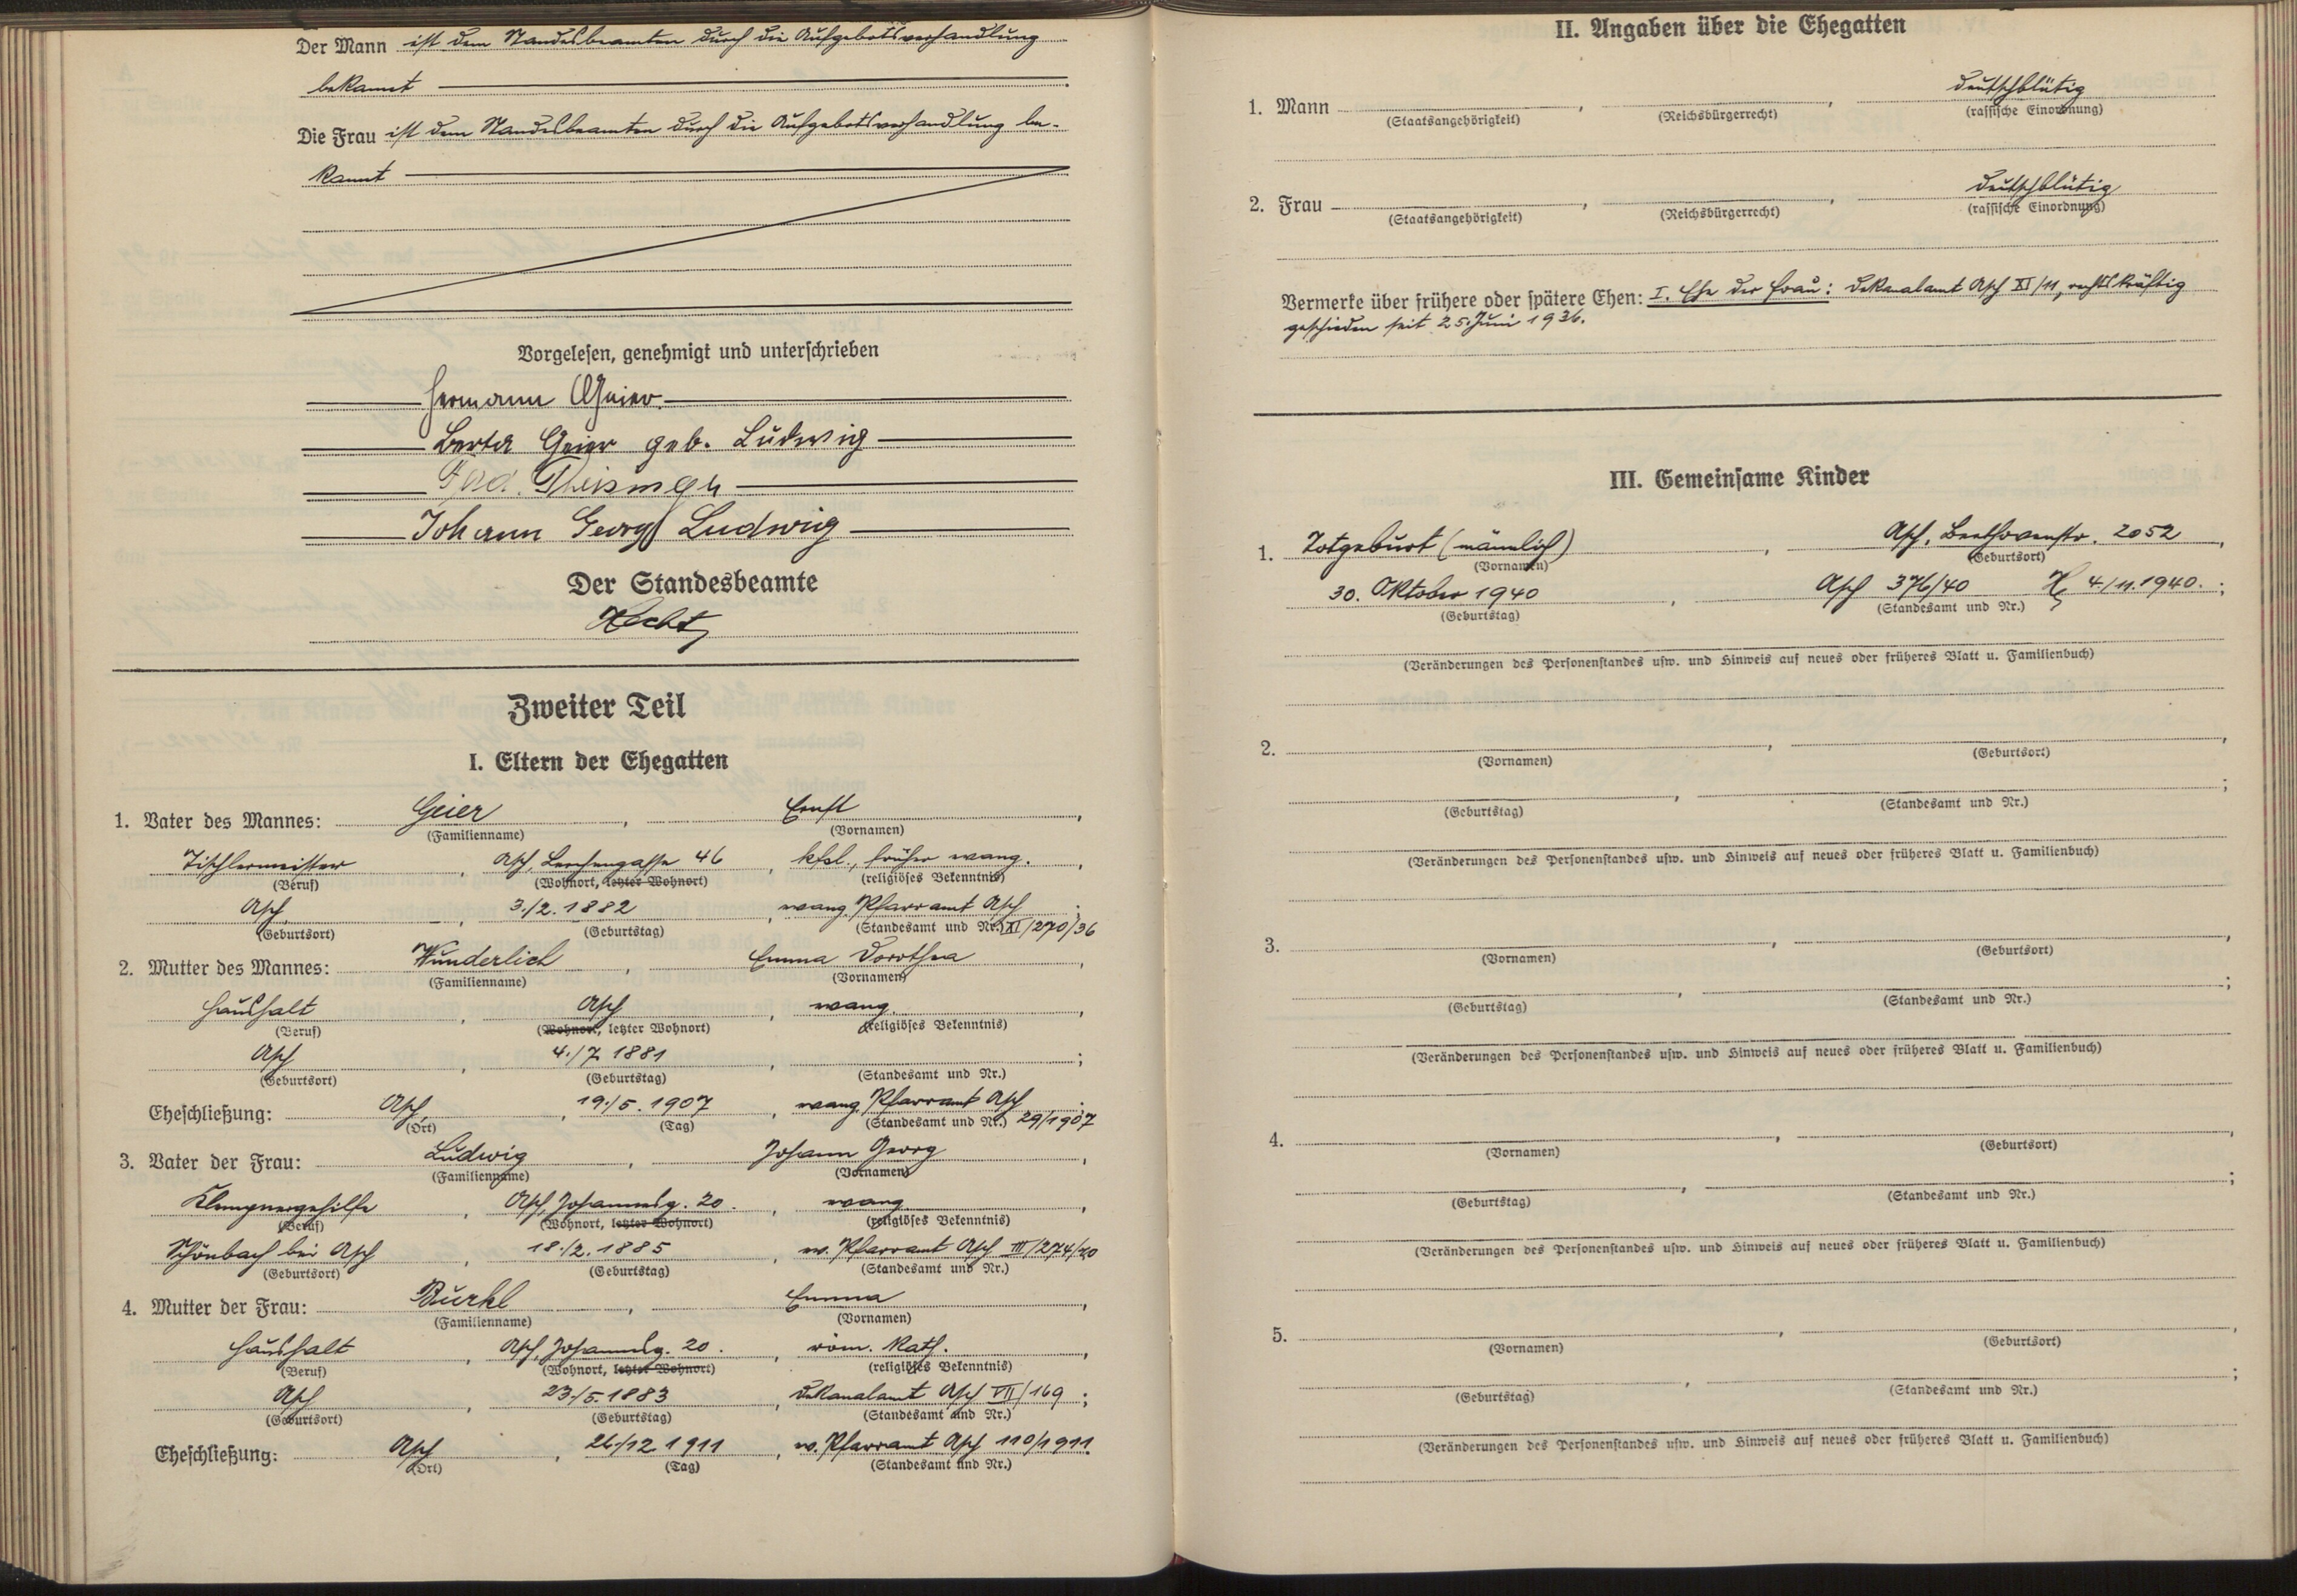 Der Mann ist dem Standesbeamten durch die Aufgebotsverhandlung
bekannt
Die Frau ist dem Standesbeamten durch die Aufgebotsverhandlung be-
kannt
Vorgelesen, genehmigt und unterschrieben
Hermann Geier
Berta Geier geb. Ludwig
Johann Georg Ludwig
Der Standesbeamte
Hecht
Zweiter Teil
I. Eltern der Ehegatten
1. Vater des Mannes: Geier, Ernst,
(Familienname) (Vornamen)
Tischlermeister, Asch, Lerchengasse 46, kfsl., früher evang.,
(Beruf) (Wohnort, letzter Wohnort) (religiöses Bekenntnis)
Asch, 3./2. 1882, evang. Pfarramt Asch;
(Geburtsort) (Geburtstag) (Standesamt und Nr.) XI/270/36
2. Mutter des Mannes: Wunderlich, Emma Dorothea,
(Familienname) (Vornamen)
Haushalt, Asch, evang.,
(Beruf) (Wohnort, letzter Wohnort) (religiöses Bekenntnis)
Asch, 4./7. 1881, ;
(Geburtsort) (Geburtstag) (Standesamt und Nr.)
Eheschließung: Asch, 19./5. 1907, evang. Pfarramt Asch;
(Ort) (Tag) (Standesamt und Nr.) 29/1907
3. Vater der Frau: Ludwig, Johann Georg,
(Familienname) (Vornamen)
Klempnergehilfe, Asch, Johannesg. 20., evang,
(Beruf) (Wohnort, letzter Wohnort) (religiöses Bekenntnis)
Schönbach bei Asch, 18./2. 1885, ev. Pfarramt Asch III/274/20
(Geburtsort) (Geburtstag) (Standesamt und Nr.)
4. Mutter der Frau: Burkl, Emma,
(Familienname) (Vornamen)
Haushalt, Asch, Johannesg. 20., röm. kath.,
(Beruf) (Wohnort, letzter Wohnort) (religiöses Bekenntnis)
Asch, 23./5. 1883, Dekanalamt Asch VII/169;
(Geburtsort) (Geburtstag) (Standesamt und Nr.)
Eheschließung: Asch, 26./12. 1911, ev. Pfarramt Asch 110/1911.
(Ort) (Tag) (Standesamt und Nr.)
II. Angaben über die Ehegatten
1. Mann , , deutschblütig
(Staatsangehörigkeit) (Reichsbürgerrecht) (rassische Einordnung)
2. Frau , , deutschblütig
(Staatsangehörigkeit) (Reichsbürgerrecht) (rassische Einordnung)
Vermerke über frühere oder spätere Ehen: I. Ehe der Frau: Dekanalamt Asch XI/11, rechtskräftig
geschieden seit 25. Juni 1936.
III. Gemeinsame Kinder
1. Totgeburt (männlich), Asch, Beethovenstr. 2052,
(Vornamen) (Geburtsort)
30. Oktober 1940, Asch 376/40 4/11.1940.;
(Geburtstag) (Standesamt und Nr.)
(Veränderungen des Personenstandes usw. und Hinweis auf neues oder früheres Blatt u. Familienbuch)
2. , ,
(Vornamen) (Geburtsort)
, ;
(Geburtstag) (Standesamt und Nr.)
(Veränderungen des Personenstandes usw. und Hinweis auf neues oder früheres Blatt u. Familienbuch)
3. , ,
(Vornamen) (Geburtsort)
, ;
(Geburtstag) (Standesamt und Nr.)
(Veränderungen des Personenstandes usw. und Hinweis auf neues oder früheres Blatt u. Familienbuch)
4. , ,
(Vornamen) (Geburtsort)
, ;
(Geburtstag) (Standesamt und Nr.)
(Veränderungen des Personenstandes usw. und Hinweis auf neues oder früheres Blatt u. Familienbuch)
5. , ,
(Vornamen) (Geburtsort)
, ;
(Geburtstag) (Standesamt und Nr.)
(Veränderungen des Personenstandes usw. und Hinweis auf neues oder früheres Blatt u. Familienbuch)